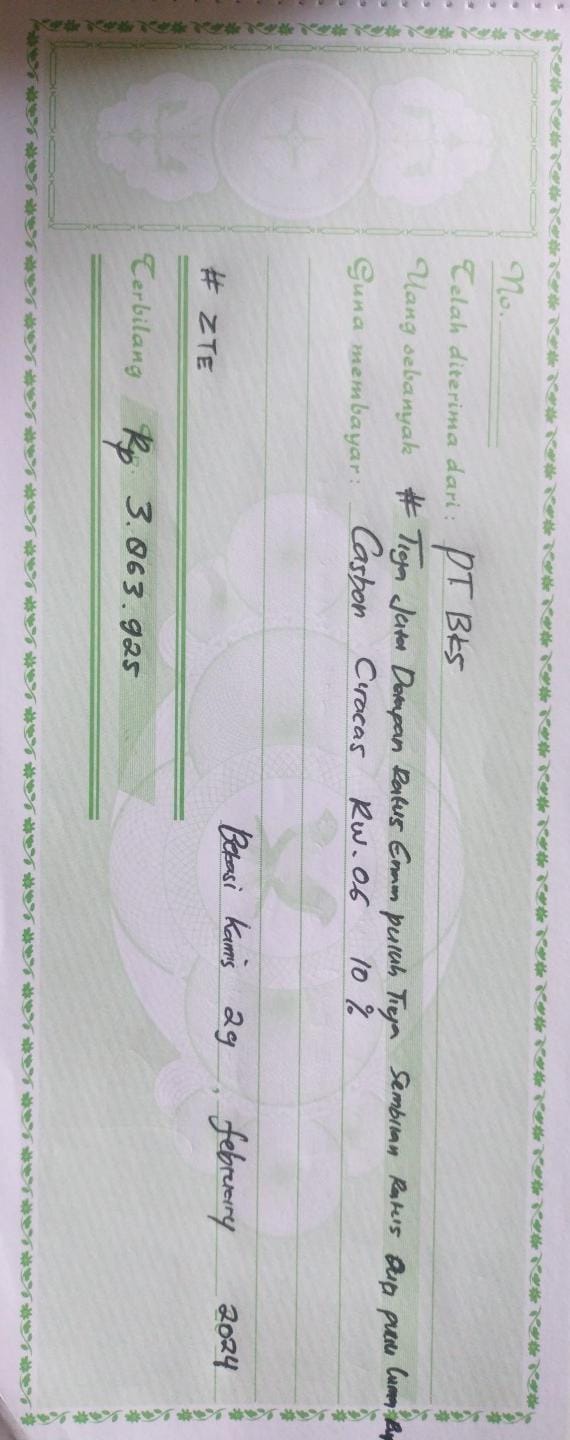 No.
Telah diterima dari: PT BKS
Uang sebanyak # Tiga Juta Delapan Ratus Enam puluh Tiga Sembilan Ratus Dua puluh Lima Rp
Guna membayar: Casbon Ciracas RW. 06 10 %
Bekasi Kamis 29, february 2024
# ZTE
Terbilang Rp 3.863.925